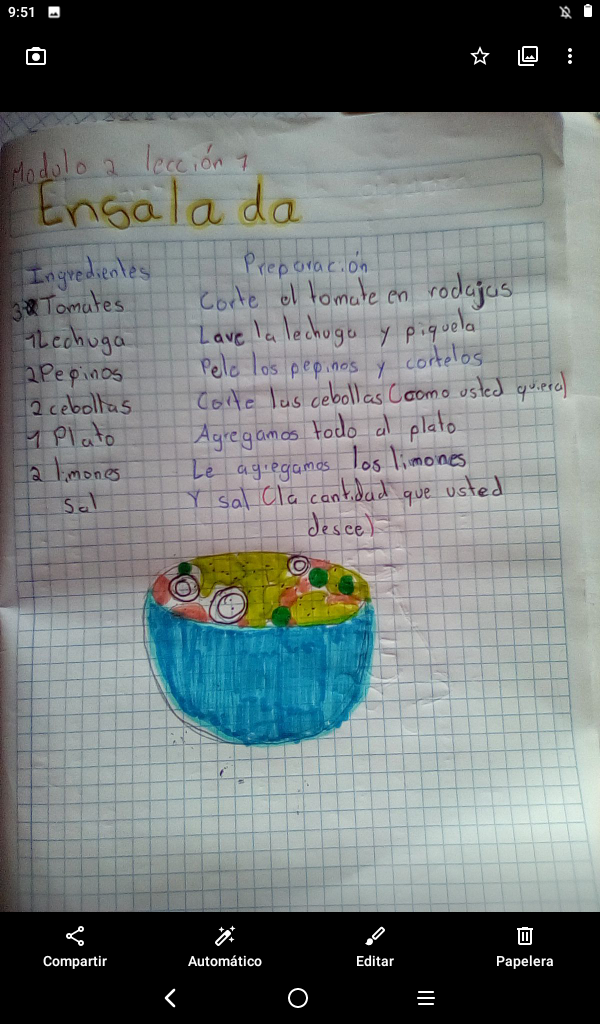 9:51
Modulo 2 lección 1
Ensalada
Ingredientes Preparación
3 Tomates Corte el tomate en rodajas
1 Lechuga Lave la lechuga y piquela
2 Pepinos Pele los pepinos y cortelos
2 cebollas Corte las cebollas (como usted quiera)
1 Plato Agregamos todo al plato
2 limones Le agregamos los limones
Sal Y sal (la cantidad que usted
desee)
Compartir Automático Editar Papelera